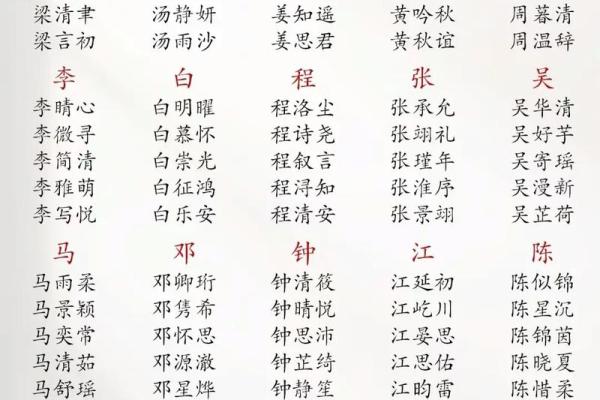 梁清聿 汤静妍 姜知遥 黄吟秋 周暮清
梁言初 汤雨沙 姜思君 黄秋谊 周温辞
李 白 程 张 吴
李晴心 白明曜 程洛尘 张承允 吴华清
李微寻 白慕怀 程诗尧 张翊礼 吴好芋
李简清 白崇光 程叙言 张瑾年 吴寄瑶
李雅萌 白征鸿 程浔知 张淮序 吴漫新
李写悦 白乐安 程清安 张景翊 吴芷荷
马 邓 钟 江 陈
马雨柔 邓卿珩 钟清筱 江延初 陈似锦
马景颖 邓隽希 钟晴悦 江屹川 陈星沉
马奕常 邓怀思 钟思沛 江晏思 陈锦茵
马清茹 邓源澈 钟芷绮 江思佑 陈晓夏
马舒瑶 邓星烨 钟静笙 江昀雷 陈惜柔